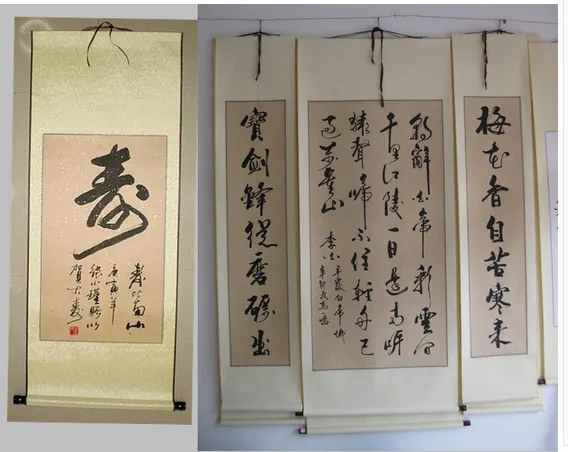 寿
寿比南山
庚寅年
贺大寿
梅花香自苦寒来
朝辭白帝彩雲间
千里江陵一日还两岸
猿聲啼不住轻舟已
过萬重山
李白早發白帝城
寶劍鋒從磨礪出